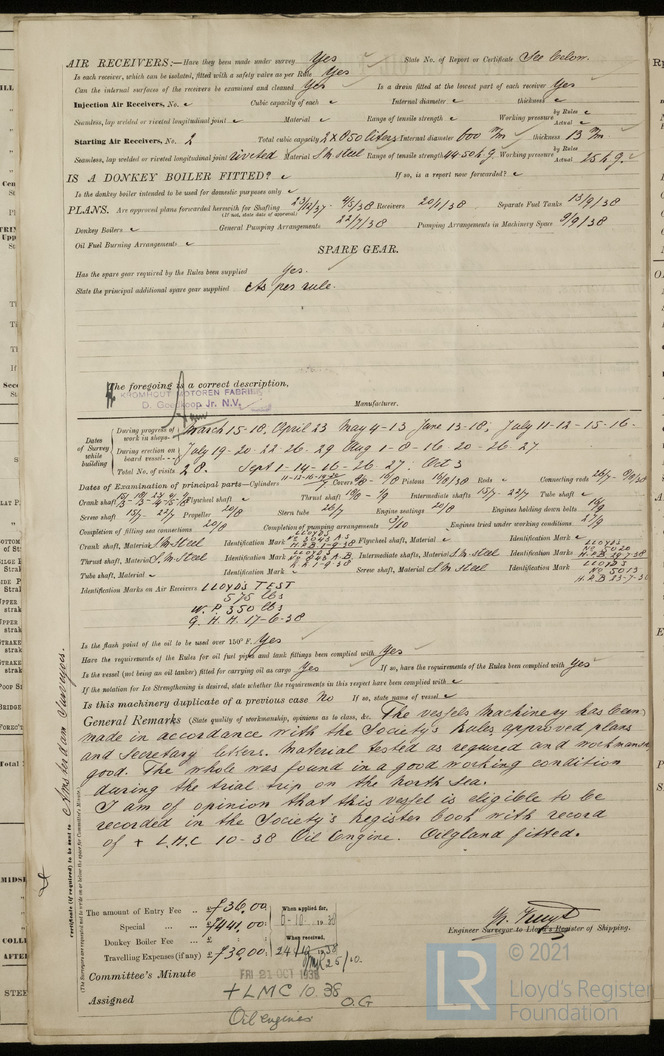 AIR RECEIVERS:—Have they been made under survey Yes State No. of Report or Certificate See below.
Is each receiver, which can be isolated, fitted with a safety valve as per Rule Yes
Can the internal surfaces of the receivers be examined and cleaned Yes Is a drain fitted at the lowest part of each receiver Yes
Injection Air Receivers, No. Cubic capacity of each Internal diameter thickness
Seamless, lap welded or riveted longitudinal joint Material Range of tensile strength Working pressure by Rules Actual
Starting Air Receivers, No. 2 Total cubic capacity 2 x 850 liters Internal diameter 600 m/m thickness 13 m/m
Seamless, lap welded or riveted longitudinal joint riveted Material S.M. Steel Range of tensile strength 44-50 kg. Working pressure by Rules Actual 25 kg.
IS A DONKEY BOILER FITTED? If so, is a report now forwarded?
Is the donkey boiler intended to be used for domestic purposes only
PLANS. Are approved plans forwarded herewith for Shafting 23/12/37 - 4/5/38 Receivers 20/1/38 Separate Fuel Tanks 13/9/38
(If not, state date of approval)
Donkey Boilers General Pumping Arrangements 22/7/38 Pumping Arrangements in Machinery Space 9/9/38
Oil Fuel Burning Arrangements
SPARE GEAR.
Has the spare gear required by the Rules been supplied Yes.
State the principal additional spare gear supplied As per rule.
The foregoing is a correct description,
KROMHOUT MOTOREN FABRIEK
D. Goedkoop Jr. N.V. Manufacturer.
Dates of Survey while building
During progress of work in shops March 15-18, April 23 May 4-13 June 13-18, July 11-12-15-16-
During erection on board vessel July 19-20-22-26-29 Aug 1-8-16-20-26-27
Total No. of visits 28. Sept 1-14-16-26-27. Oct 3
Dates of Examination of principal parts—Cylinders Covers Pistons Rods Connecting rods
Crank shaft Flywheel shaft Thrust shaft Intermediate shafts 15/7-22/7 Tube shaft
Screw shaft 15/7 22/7 Propeller 20/8 Stern tube 26/7 Engine seatings 20/8 Engines holding down bolts
Completion of fitting sea connections 20/8 Completion of pumping arrangements 3/10 Engines tried under working conditions
Crank shaft, Material S.M. Steel Identification Mark LLOYDS Flywheel shaft, Material Identification Mark
Thrust shaft, Material S.M. Steel Identification Mark LLOYDS Intermediate shafts, Material S.M. Steel Identification Marks LLOYDS No 5020
Tube shaft, Material Identification Mark Screw shaft, Material S.M. Steel Identification Mark LLOYDS No 5013
Identification Marks on Air Receivers LLOYDS TEST
575 lbs
W.P. 350 lbs
G.H.H. 17-6-38
Is the flash point of the oil to be used over 150° F. Yes
Have the requirements of the Rules for oil fuel pipes and tank fittings been complied with Yes
Is the vessel (not being an oil tanker) fitted for carrying oil as cargo Yes If so, have the requirements of the Rules been complied with Yes
If the notation for Ice Strengthening is desired, state whether the requirements in this respect have been complied with
Is this machinery duplicate of a previous case No If so, state name of vessel
General Remarks (State quality of workmanship, opinions as to class, &c. The vessels machinery has been
made in accordance with the Society's Rules, approved plans
and Secretary letters. Material tested as required and workmanship
good. The whole was found in a good working condition
during the trial trip on the North Sea.
I am of opinion that this vessel is eligible to be
recorded in the Society's Register book with record
of + L.M.C 10-38 Oil Engine. Oilgland fitted.
Certificate (if required) to be sent to Amsterdam Surveyors.
(The Surveyors are requested not to write on or below the space for Committee's Minute.)
The amount of Entry Fee .. £ ƒ36.00 When applied for,
Special ... ... £ ƒ441.00
Donkey Boiler Fee .. £ When received,
Travelling Expenses (if any) £ ƒ30.00 24/10 1938
Engineer Surveyor to Lloyd's Register of Shipping.
Committee's Minute FRI 21 OCT 1938
Assigned + LMC 10 38
O.G
Oil engines
© 2021
LR
Lloyd's Register
Foundation